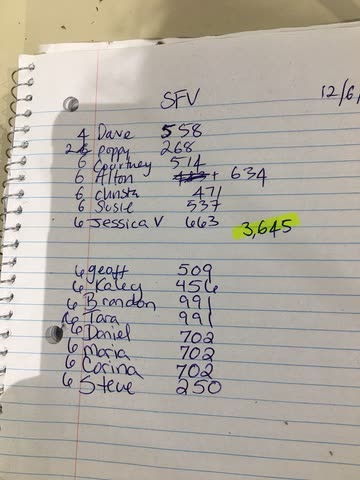 SFV 12/6/
4 Dave 558
2 poppy 268
6 Courtney 514
6 Alton 634
6 Christa 471
6 Susie 537
6 Jessica V 663 3,645
6 geoff 509
6 Kaley 456
6 Brandon 991
6 Tara 991
6 Daniel 702
6 Maria 702
6 Corina 702
6 Steve 250